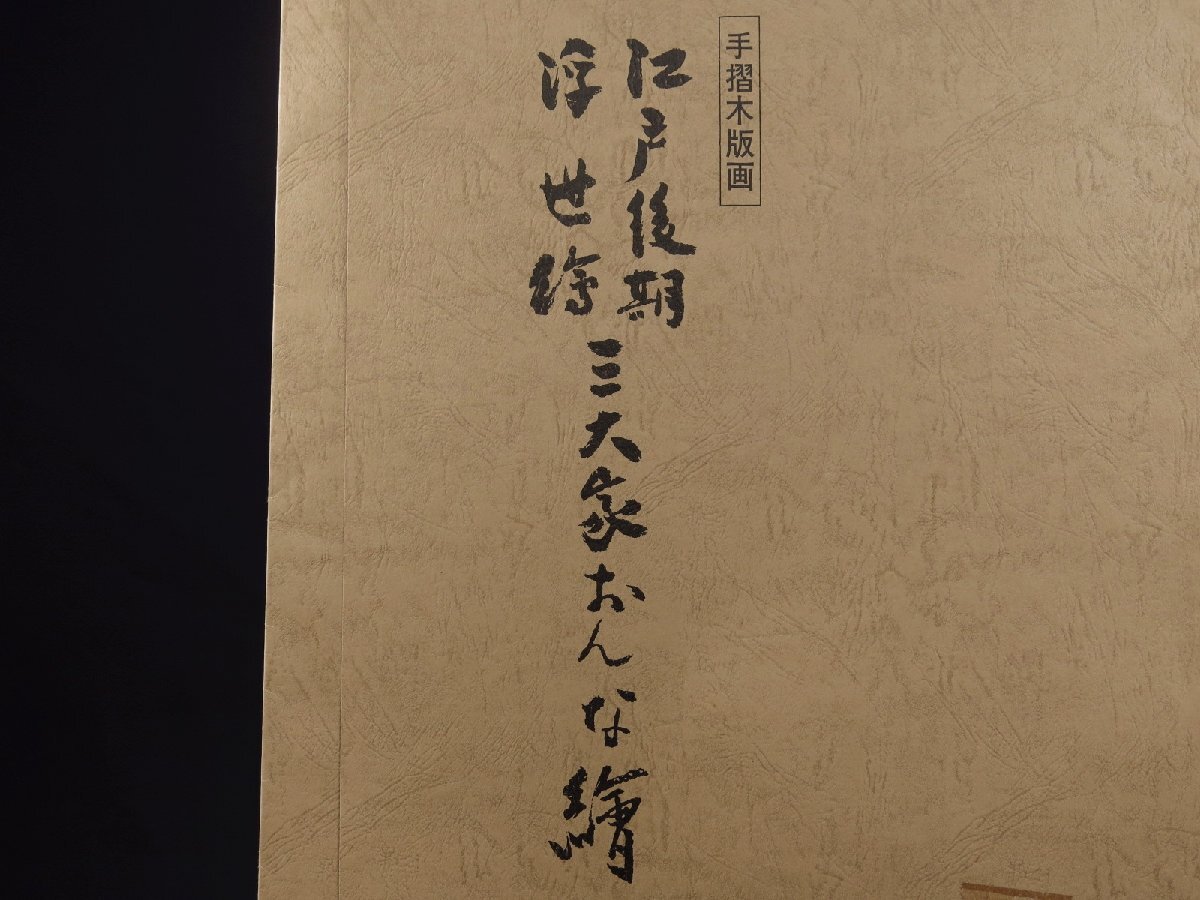 手摺木版画
江戸後期
浮世絵
三大家おんな繪